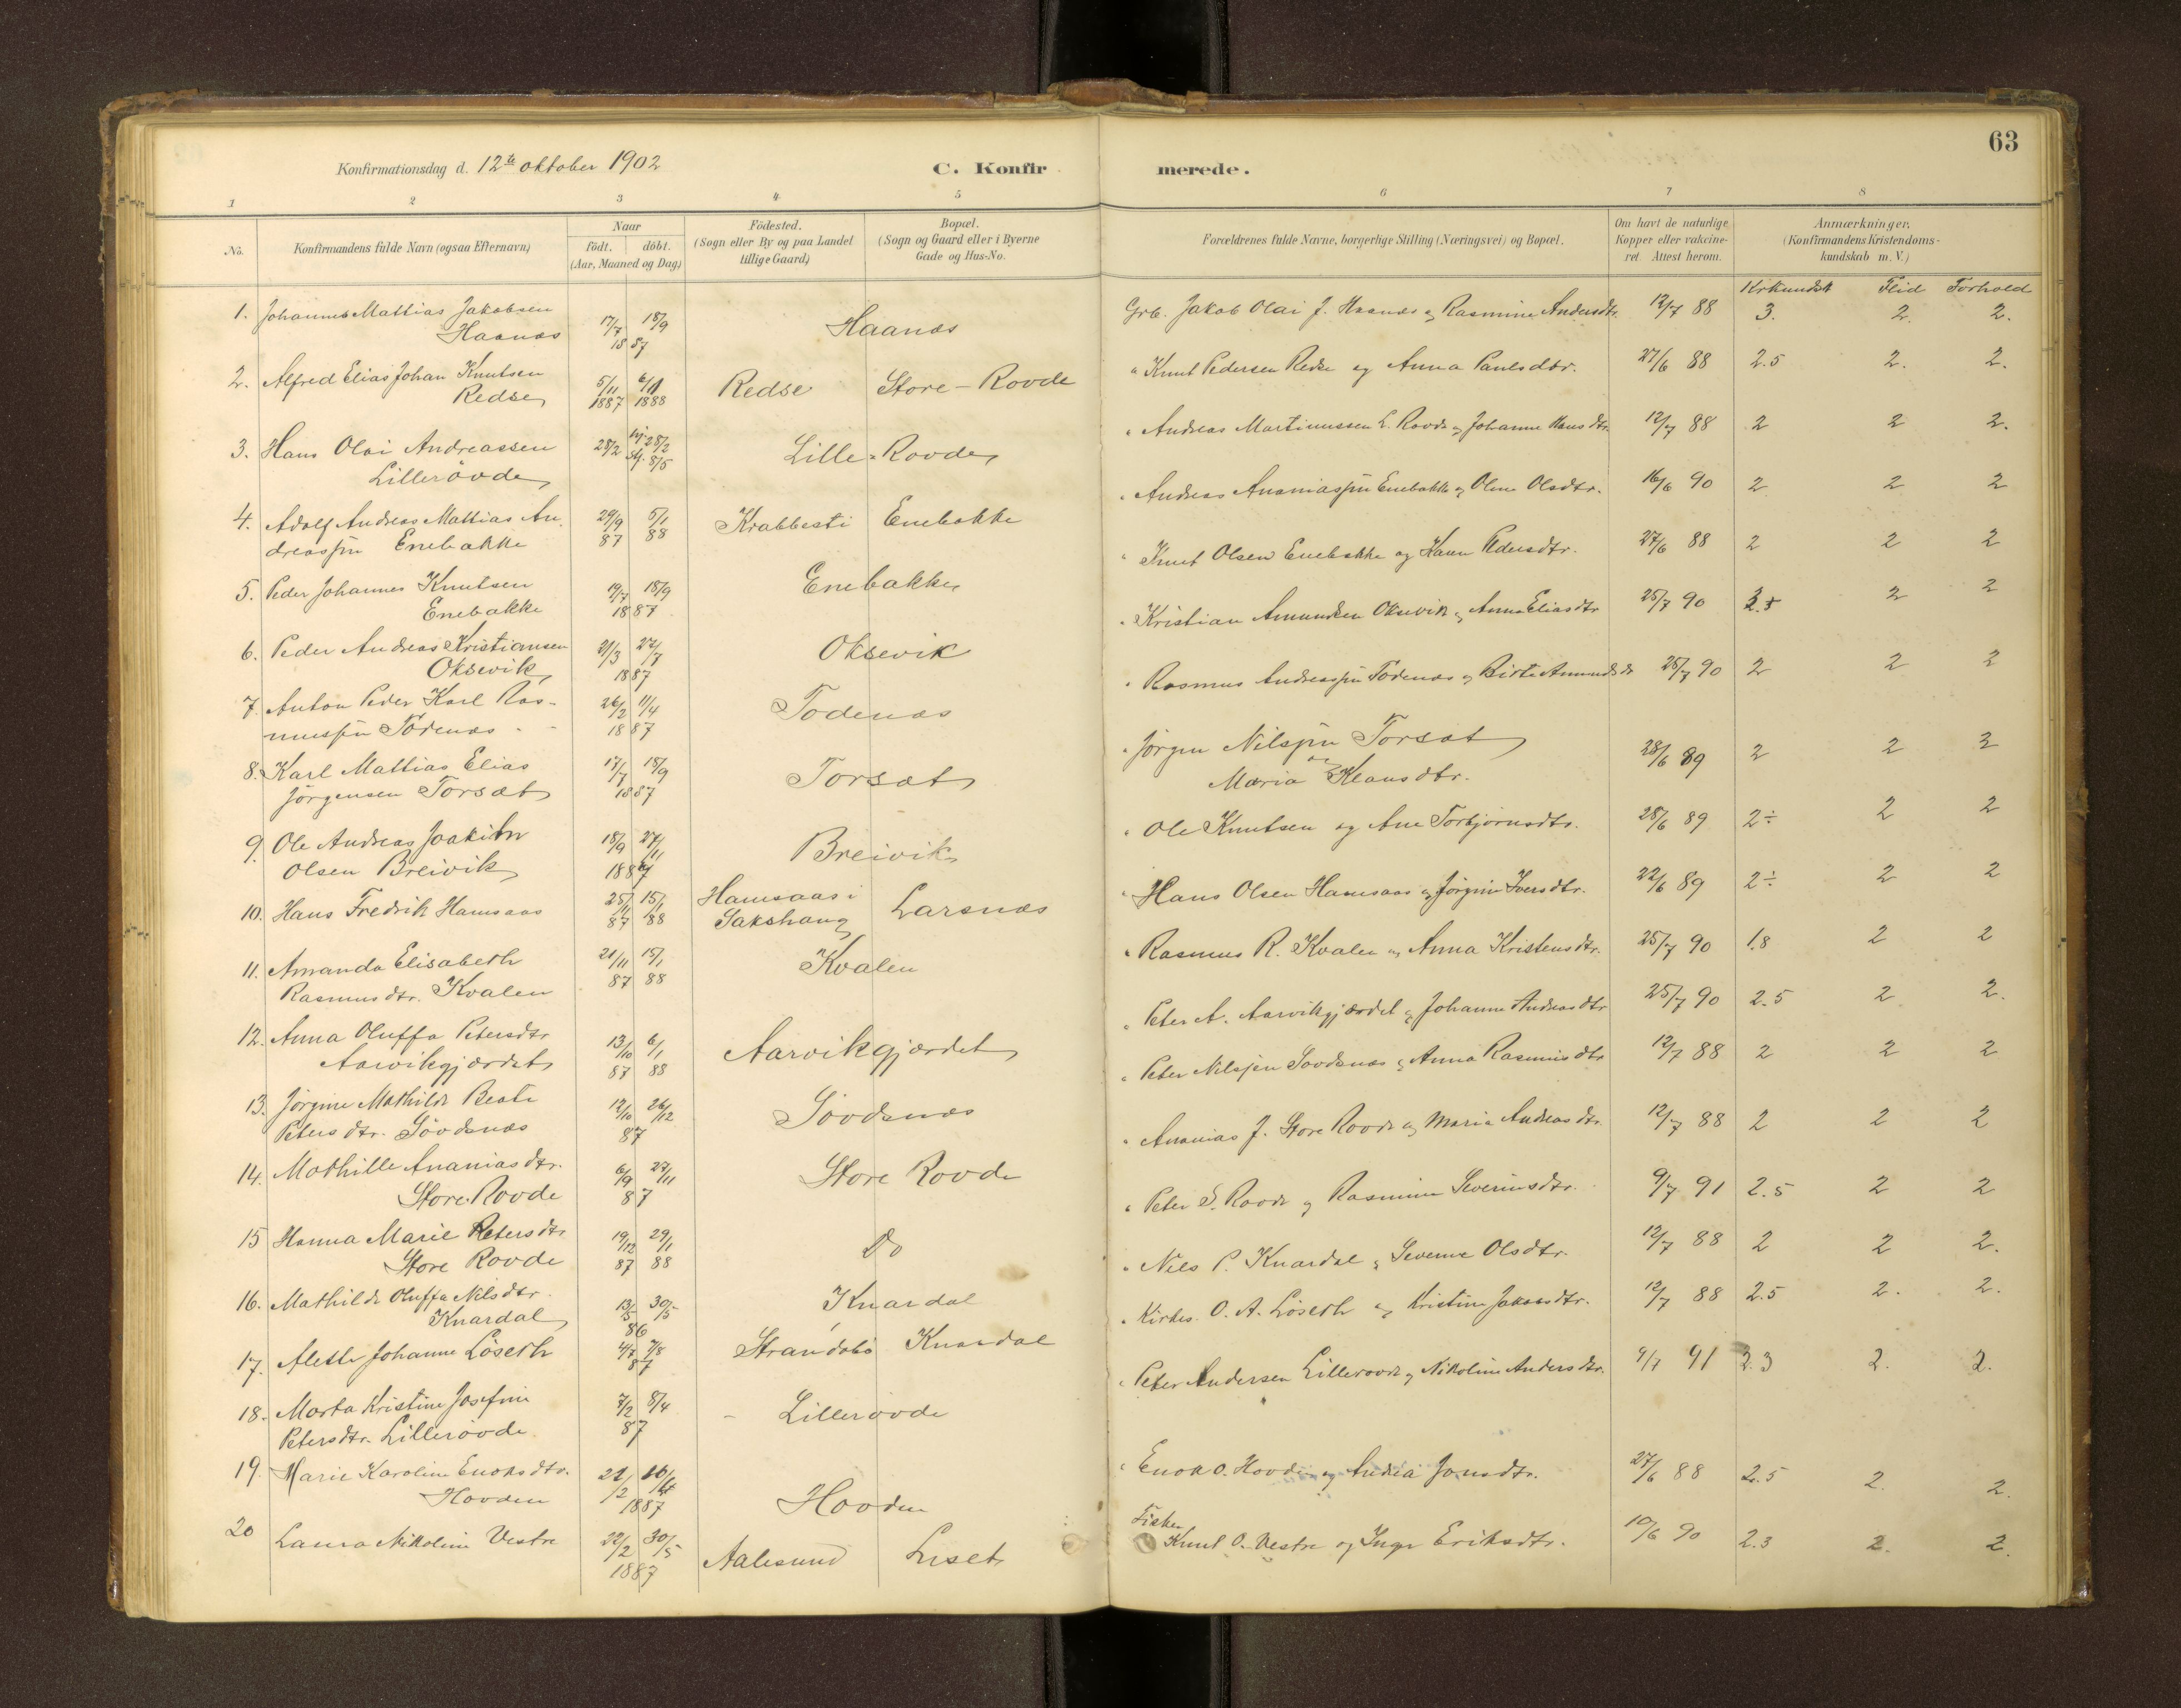 63
Konfirmationsdag d. 12te oktober 1902
C. Konfirmerede.
1 2 3 4 5 6 7 8
No.
Konfirmandens fulde Navn (ogsaa Efternavn)
Naar
født. døbt.
(Aar, Maaned og Dag)
Fødested.
(Sogn eller By og paa Landet
tillige Gaard)
Bopæl.
(Sogn og Gaard eller i Byerne
Gade og Hus-No.
Forældrenes fulde Navne, borgerlige Stilling (Næringsvei) og Bopæl.
Om havt de naturlige
Kopper eller vakcine-
ret. Attest herom.
Anmærkninger.
(Konfirmandens Kristendoms-
kundskab m. V.)
Krkundsk Flid Forhold
1. Johannes Mattias Jakobsen
Haanæs
17/7 18/9
1887
Haanæs
Grb. Jakob Olai J. Haanæs og Rasmine Andersdtr. 12/7 88 3. 2. 2.
2. Alfred Elias Johan Knutsen
Redse
5/11 6/1
1887 1888
Redse Store-Rovde
" Knut Pedersen Redse og Anna Paulsdtr. 27/6 88 2.5 2. 2.
3. Hans Olai Andreassen
Lillerövde
28/2 28/2
8/5
Lille-Rovde
" Andreas Martinussen L. Rovde og Johanne Hansdtr. 12/7 88 2 2 2.
4. Adolf Andreas Mattias An-
dreassen Enebakke
29/9 5/1
87 88
Krabbesti Enebakke
" Andreas Ananiassen Enebakke og Oline Olsdtr. 16/6 90 2 2 2
5. Peder Johannes Knutsen
Enebakke
19/7 18/9
1887
Enebakke
" Knut Olsen Enebakke og Karen Pedersdtr. 27/6 88 2 2 2
6. Peder Andreas Kristiansen
Oksevik
21/3 27/7
1887
Oksevik
" Kristian Amundsen Oksevik og Anna Eliasdtr 25/7 90 2 2
7. Anton Peder Karl Ras-
mussen Tödenæs
26/2 11/4
1887
Todenæs
" Rasmus Andreassen Todenæs og Birte Amundsdr 25/7 90 2 2 2
8. Karl Mattias Elias
Jörgensen Torsæt
17/7 18/9
1887
Torsæt
" Jörgen Nilssen Torsæt
og
Maria Klausdtr.
28/6 89 2 2 2
9. Ole Andreas Joakim
Olsen Breivik
18/9 27/11
1887
Breivik
" Ole Knutsen og Ane Torbjörnsdtr. 28/6 89 2÷ 2 2
10. Hans Fredrik Hamsaas
25/11 15/1
87 88
Hamsaas i
Sakshaug
Larsnæs
" Hans Olsen Hamsaas og Jörgine Iversdtr. 22/6 89 2÷ 2 2
11. Amanda Elisabeth
Rasmusdtr. Kvalen
21/11 15/1
87 88
Kvalen
" Rasmus R. Kvalen og Anna Kristensdtr. 25/7 90 1.8 2 2
12. Anna Oluffa Petersdtr
Aarvikgjærdet
13/10 6/1
87 88
Aarvikgjærdet
" Peter A. Aarvikgjærdet og Johanne Andreasdtr 25/7 90 2.5 2 2.
13. Jörgine Mathilde Beate
Petersdtr. Sövdsnæs
12/10 26/12
87
Sövdsnæs
" Peter Nilssen Sovdsnæs og Anna Rasmusdtr 12/7 88 2 2 2
14. Mathille Ananiasdtr.
Store Rovde
6/9 27/11
87
Store Rovde
" Ananias J. Store Rovde og Maria Andreasdtr. 12/7 88 2 2 2
15 Hanna Marie Petersdtr
Store Rovde
19/12 29/1
87 88
Do
" Peter S. Rovde og Rasmine Severinsdtr. 9/7 91 2.5 2 2
16. Mathilde Oluffa Nilsdtr.
Knardal
13/5 30/5
86
Knardal
" Nils P. Knardal og Severine Olsdtr. 12/7 88 2 2 2.
17. Alette Johanne Löseth
4/7 7/8
87
Strandabö Knardal
" Kirkes. O. A. Löseth og Kristine Jakobsdtr. 12/7 88 2.5 2. 2.
18. Marta Kristine Josefine
Petersdtr. Lillerövde
7/2 8/4
87
- Lillerövde
" Peter Andersen Lillerovde og Nikoline Andersdtr. 9/7 91 2.3 2. 2.
19. Marie Karoline Enoksdtr.
Hovden
21/2
1887
Hovden
" Enok O. Hovden og Andrea Jonsdtr. 27/6 88 2.5 2. 2.
20 Laura Nikoline Vestre
22/2 30/5
1887
Aalesund Liset
Fisker
Knut O. Vestre og Inger Eriksdtr. 10/6 90 2.3 2. 2.